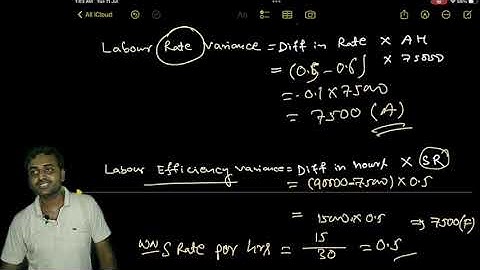 All iCloud
Labour Rate variance = Diff in Rate × AH
= (0.5 - 0.6) × 75000
= -0.1 × 7500
= 7500 (A)
Labour Efficiency variance = Diff in hours × SR
= (90000-7500) × 0.5
= 1500 × 0.5 ⇒ 7500 (F)
WN S Rate per hrs = 15/30 = 0.5